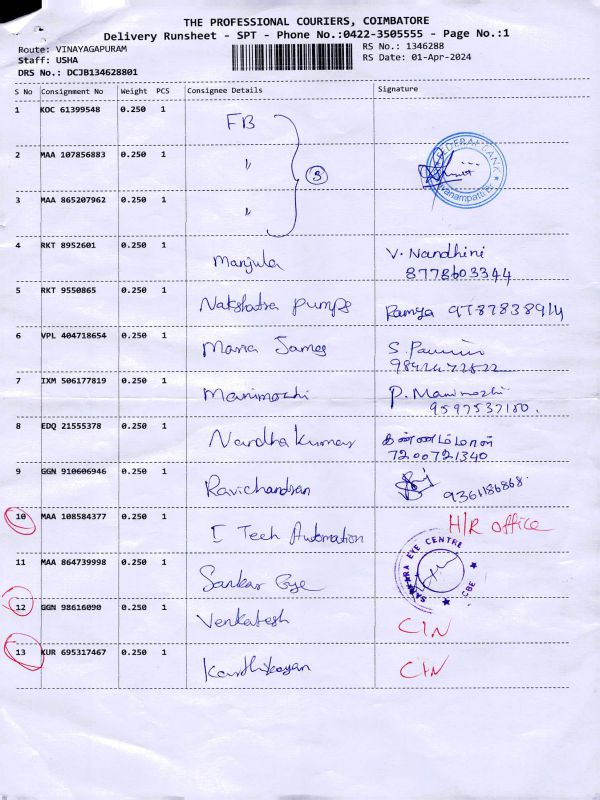 THE PROFESSIONAL COURIERS, COIMBATORE
Delivery Runsheet - SPT - Phone No.:0422-3505555 - Page No.:1
Route: VINAYAGAPURAM
Staff: USHA
DRS No.: DCJB134628801
RS No.: 1346288
RS Date: 01-Apr-2024
S No Consignment No Weight PCS Consignee Details Signature
1 KOC 61399548 0.250 1 FB
2 MAA 107856883 0.250 1 "
3 MAA 865207962 0.250 1 "
3
FEDERAL BANK
4 RKT 8952601 0.250 1 Manjula V. Nandhini
8778603344
5 RKT 9550865 0.250 1 Nakshatra pumps Ramya
6 VPL 404718654 0.250 1 Maria James S.
7 IXM 506177819 0.250 1 Manimozhi P. Manimozhi
9597537180.
8 EDQ 21555378 0.250 1 Nandha Kumar
7200721340
9 GGN 910606946 0.250 1 Ravichandran 9361186868
10 MAA 108584377 0.250 1 I Tech Automation H/R office
11 MAA 864739998 0.250 1 Sankar Eye
SANKARA EYE CENTRE
CBE
12 GGN 98616090 0.250 1 Venkatesh C/N
13 KUR 695317467 0.250 1 Karthikeyan C/N